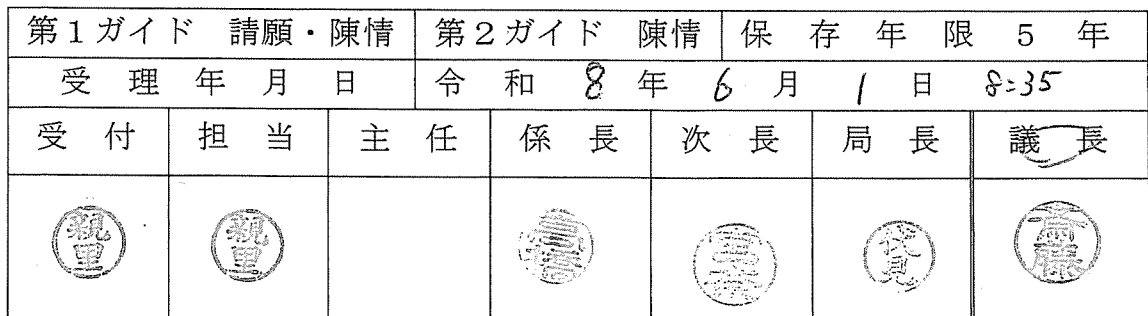 第1ガイド 請願・陳情 第2ガイド 陳情 保存年限5年
受理年月日 令和8年6月1日 8:35
受付 担当 主任 係長 次長 局長 議長
親里 親里 伏見 斎藤